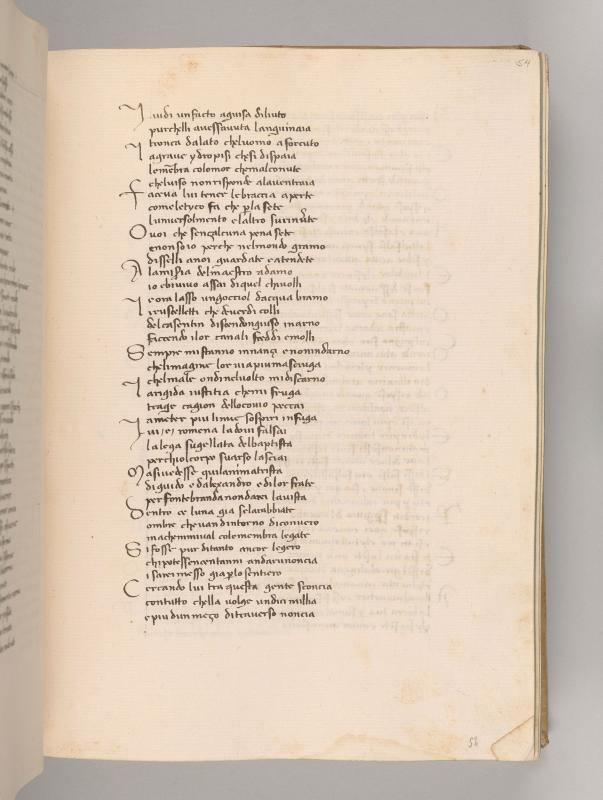 54
I vidi un facto aguisa diliuto
purchelli avessavuta languinaia
tronca dalato cheluomo a forcuto
I agrave ydropisi chesi dispaia
lemēbra colomor chemalconvte
cheluiso nonrisponde alaventraia
F aceva lui tener lebraccia aperte
cometetyco fa che pla sete
lunversolmento elaltro surinvte
O voi che senzalcuna pena sete
enonsoio perche nelmondo gramo
disselli anoi guardate eatendete
A lamisia delmaestro adamo
io ebivivo assai diquel chivolli
eora lasso ungocciol dacqua bramo
I ruscelletti che deverdi colli
delcasentin discendonguiso inarno
faccendo ilor canali freddi emolli
S empre mistanno innanzi enonindarno
chelimagine lor viapiumasciuga
chelmale ondinelvolto midiscarno
L arigida iustitia chemi fruga
trage cagion dellocovio peccai
ameter piu limie sospiri infuga
I vi e romena ladovi falsai
lalega sugellata delbaptista
perchiolcorpo suarso lasciai
M asivedesse quilanimatrista
diguido edalexandro edilor frate
perfontebranda nondarei lavista
D entro ce luna gia selarabbiate
ombre chevandintorno diconvero
machemmival colemembra legate
S i fosse pur ditanto ancor legero
chipotessencentanni andarunoncia
i sarei messo gia plo sentiero
C ercando lui tra questa gente sconcia
contutto chella volge undici millia
epiu dun mezo ditraverso noncia
56